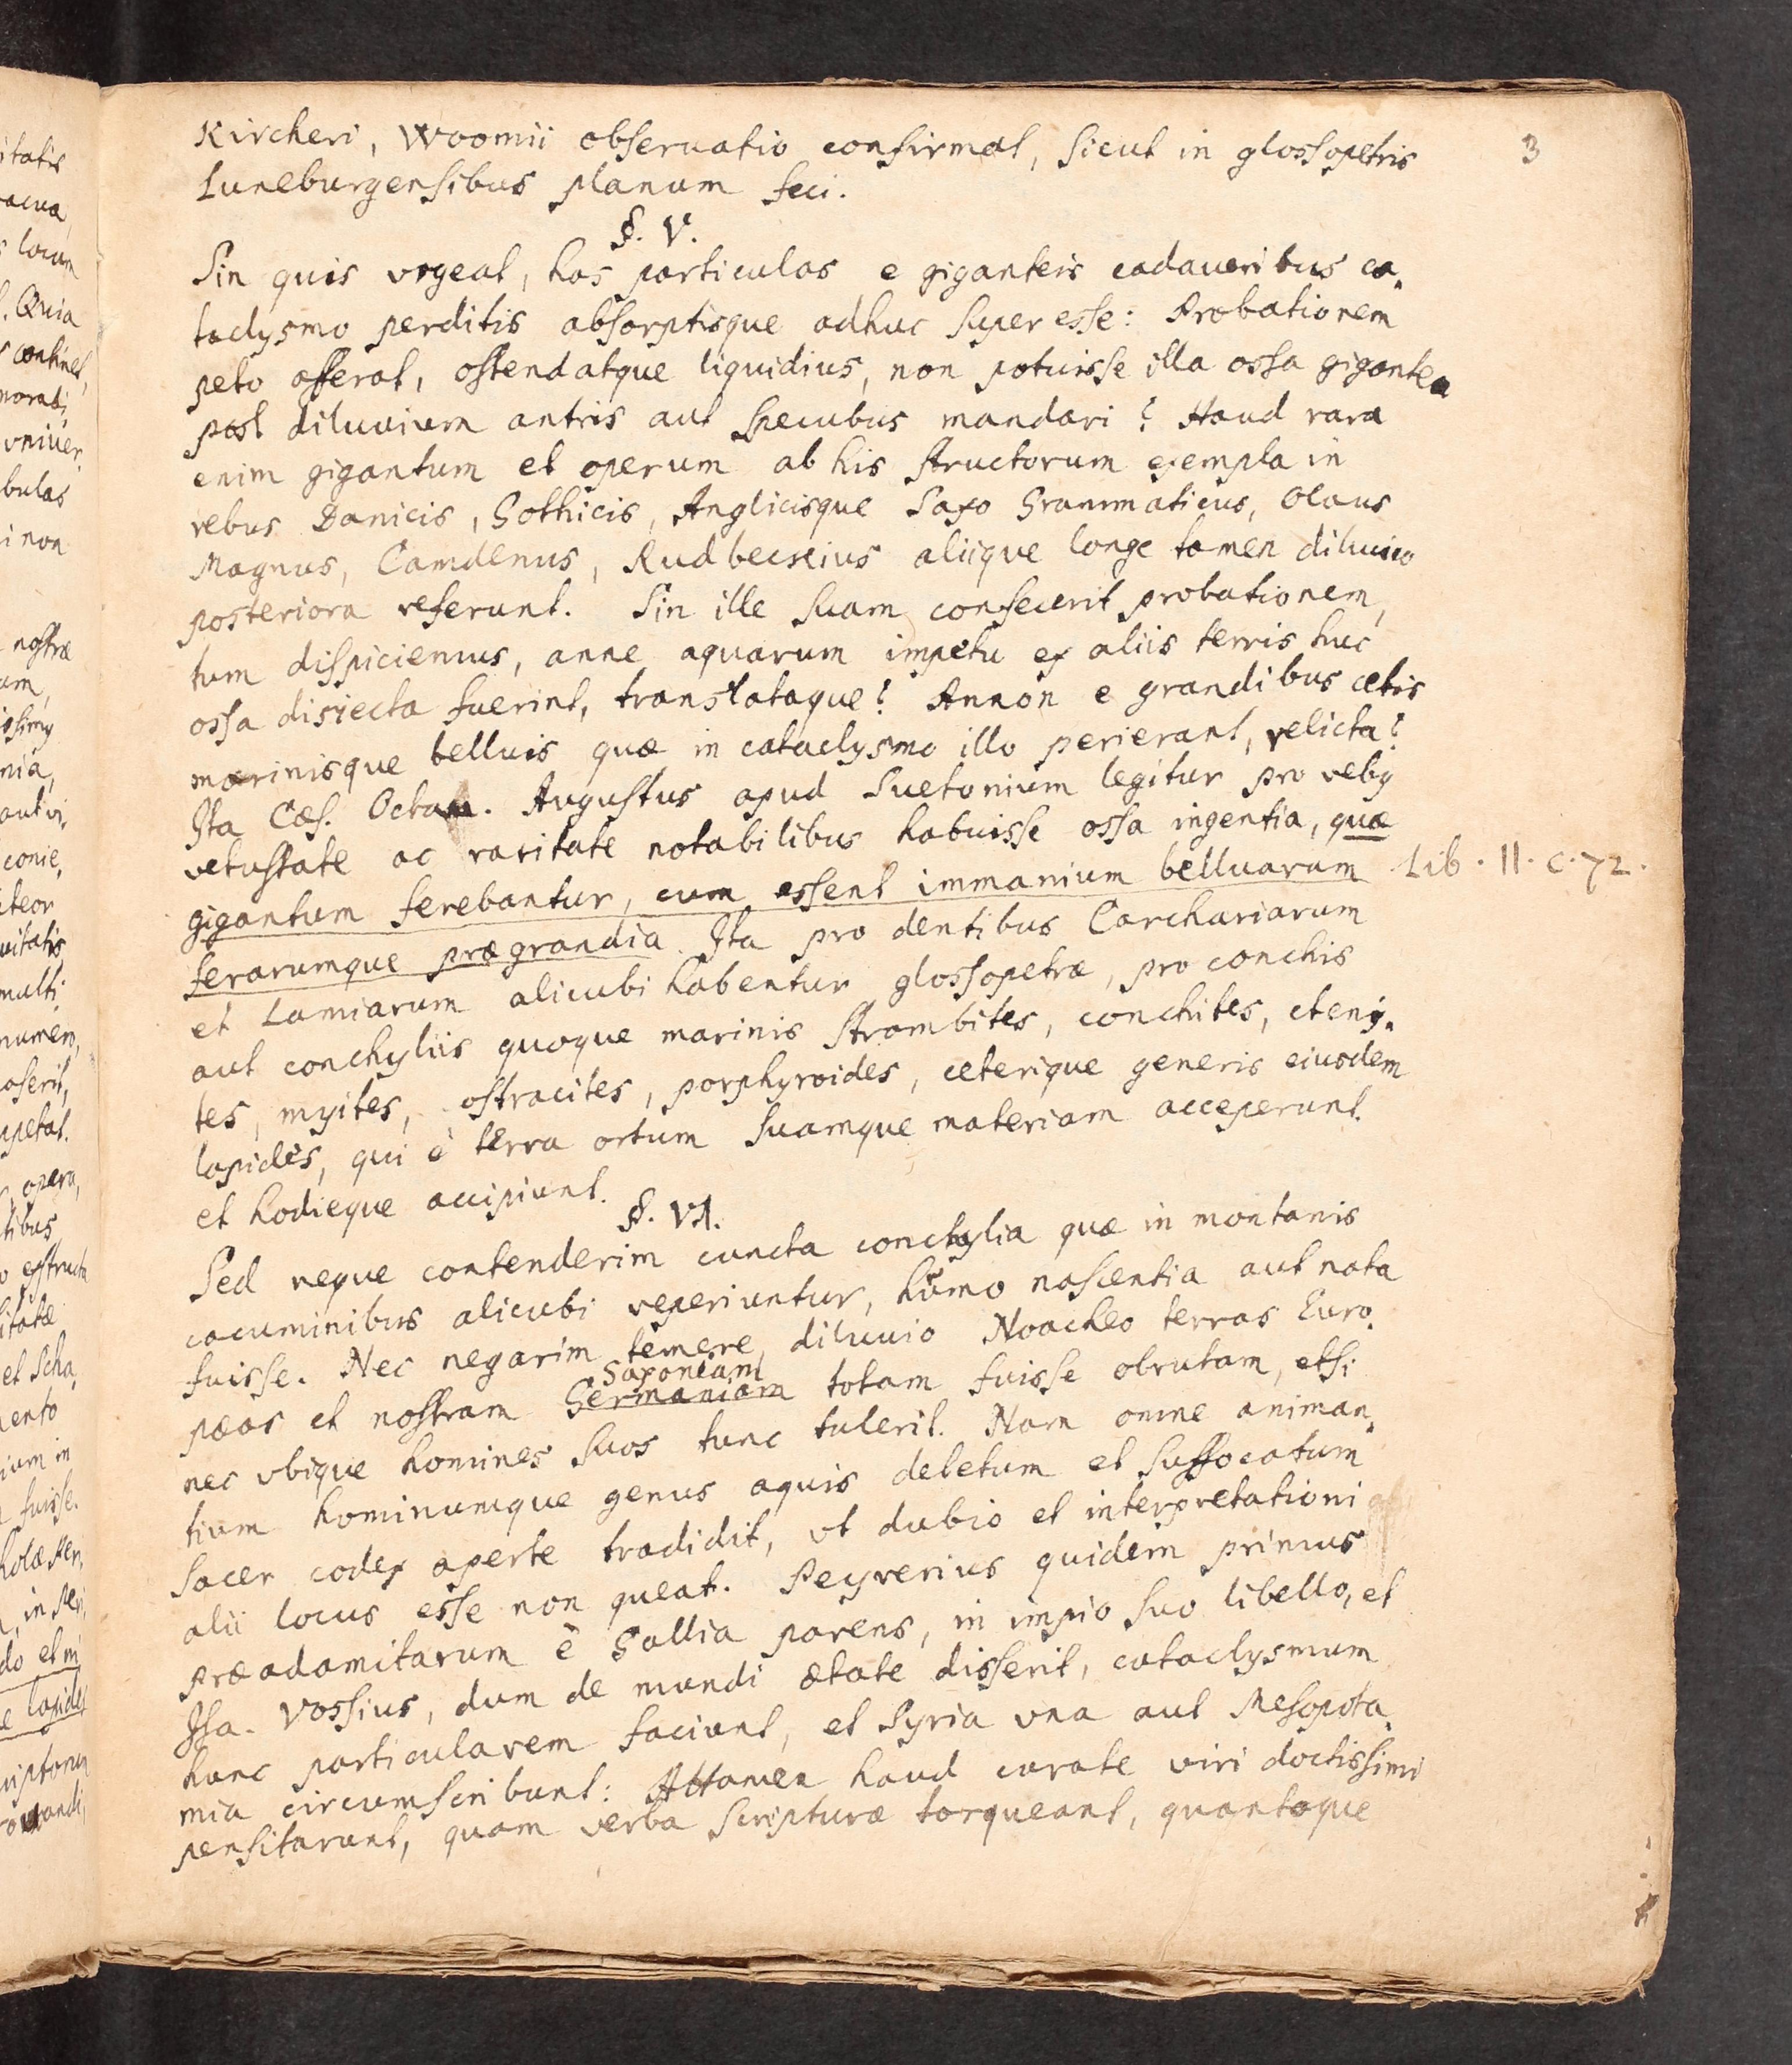 3
Kircheri, Woomii obseruatio confirmat, sicut in glossopetris
Luneburgensibus planum feci.
§. V.
Sin quis vrgeat, has particulas e giganteis cadaueribus ca-
taclysmo perditis absorptisque adhuc superesse: Probationem
peto afferat, ostendatque liquidius, non potuisse illa ossa gigantea
post diluuium antris aut specubus mandari? Haud rara
enim gigantum et operum ab his structorum exempla in
rebus Danicis, Gothicis, Anglicisque Saxo Grammaticus, Olaus
Magnus, Camdenus, Rudbeckius aliique longe tamen diluuio
posteriora referunt. Sin ille suam confecerit probationem,
tum dispiciemus, anne aquarum impetu ex aliis terris huc
ossa disiecta fuerint, translataque? Annon e grandibus cetis
marinisque belluis quæ in cataclysmo illo perierant, relicta?
Ita Cæs. Octau. Augustus apud Suetonium legitur pro rebq
vetustate ac raritate notabilibus habuisse ossa ingentia, quæ
gigantum ferebantur, cum essent immanium belluarum
Lib. II. c. 72.
ferarumque prægrandia. Ita pro dentibus Carchariarum
et Lamiarum alicubi habentur glossopetræ, pro conchis
aut conchyliis quoque marinis strombites, conchites, cteni-
tes, myites, ostracites, porphyroides, ceterique generis eiusdem
lapides, qui è terra ortum suamque materiam acceperunt
et hodieque accipiunt.
§. VI.
Sed neque contenderim cuncta conchylia quæ in montanis
cacuminibus alicubi reperiuntur, humo nascentia aut nata
fuisse. Nec negarim temere, diluuio Noacheo terras Euro-
pæas et nostram Germaniam totam fuisse obrutam, etsi
Saxoniam
nec vbique homines suos tunc tulerit. Nam omne animan-
tium hominumque genus aquis deletum et suffocatum
sacer codex aperte tradidit, vt dubio et interpretationi
alii locus esse non queat. Peyrerius quidem primus
præadamitarum è Gallia parens, in impio suo libello, et
Isa. Vossius, dum de mundi ætate disserit, cataclysmum
hunc particularem faciunt, et Syria vna aut Mesopota-
mia circumscribunt: Attamen haud curate viri doctissimi
pensitarunt, quam verba scripturæ torqueant, quantaque